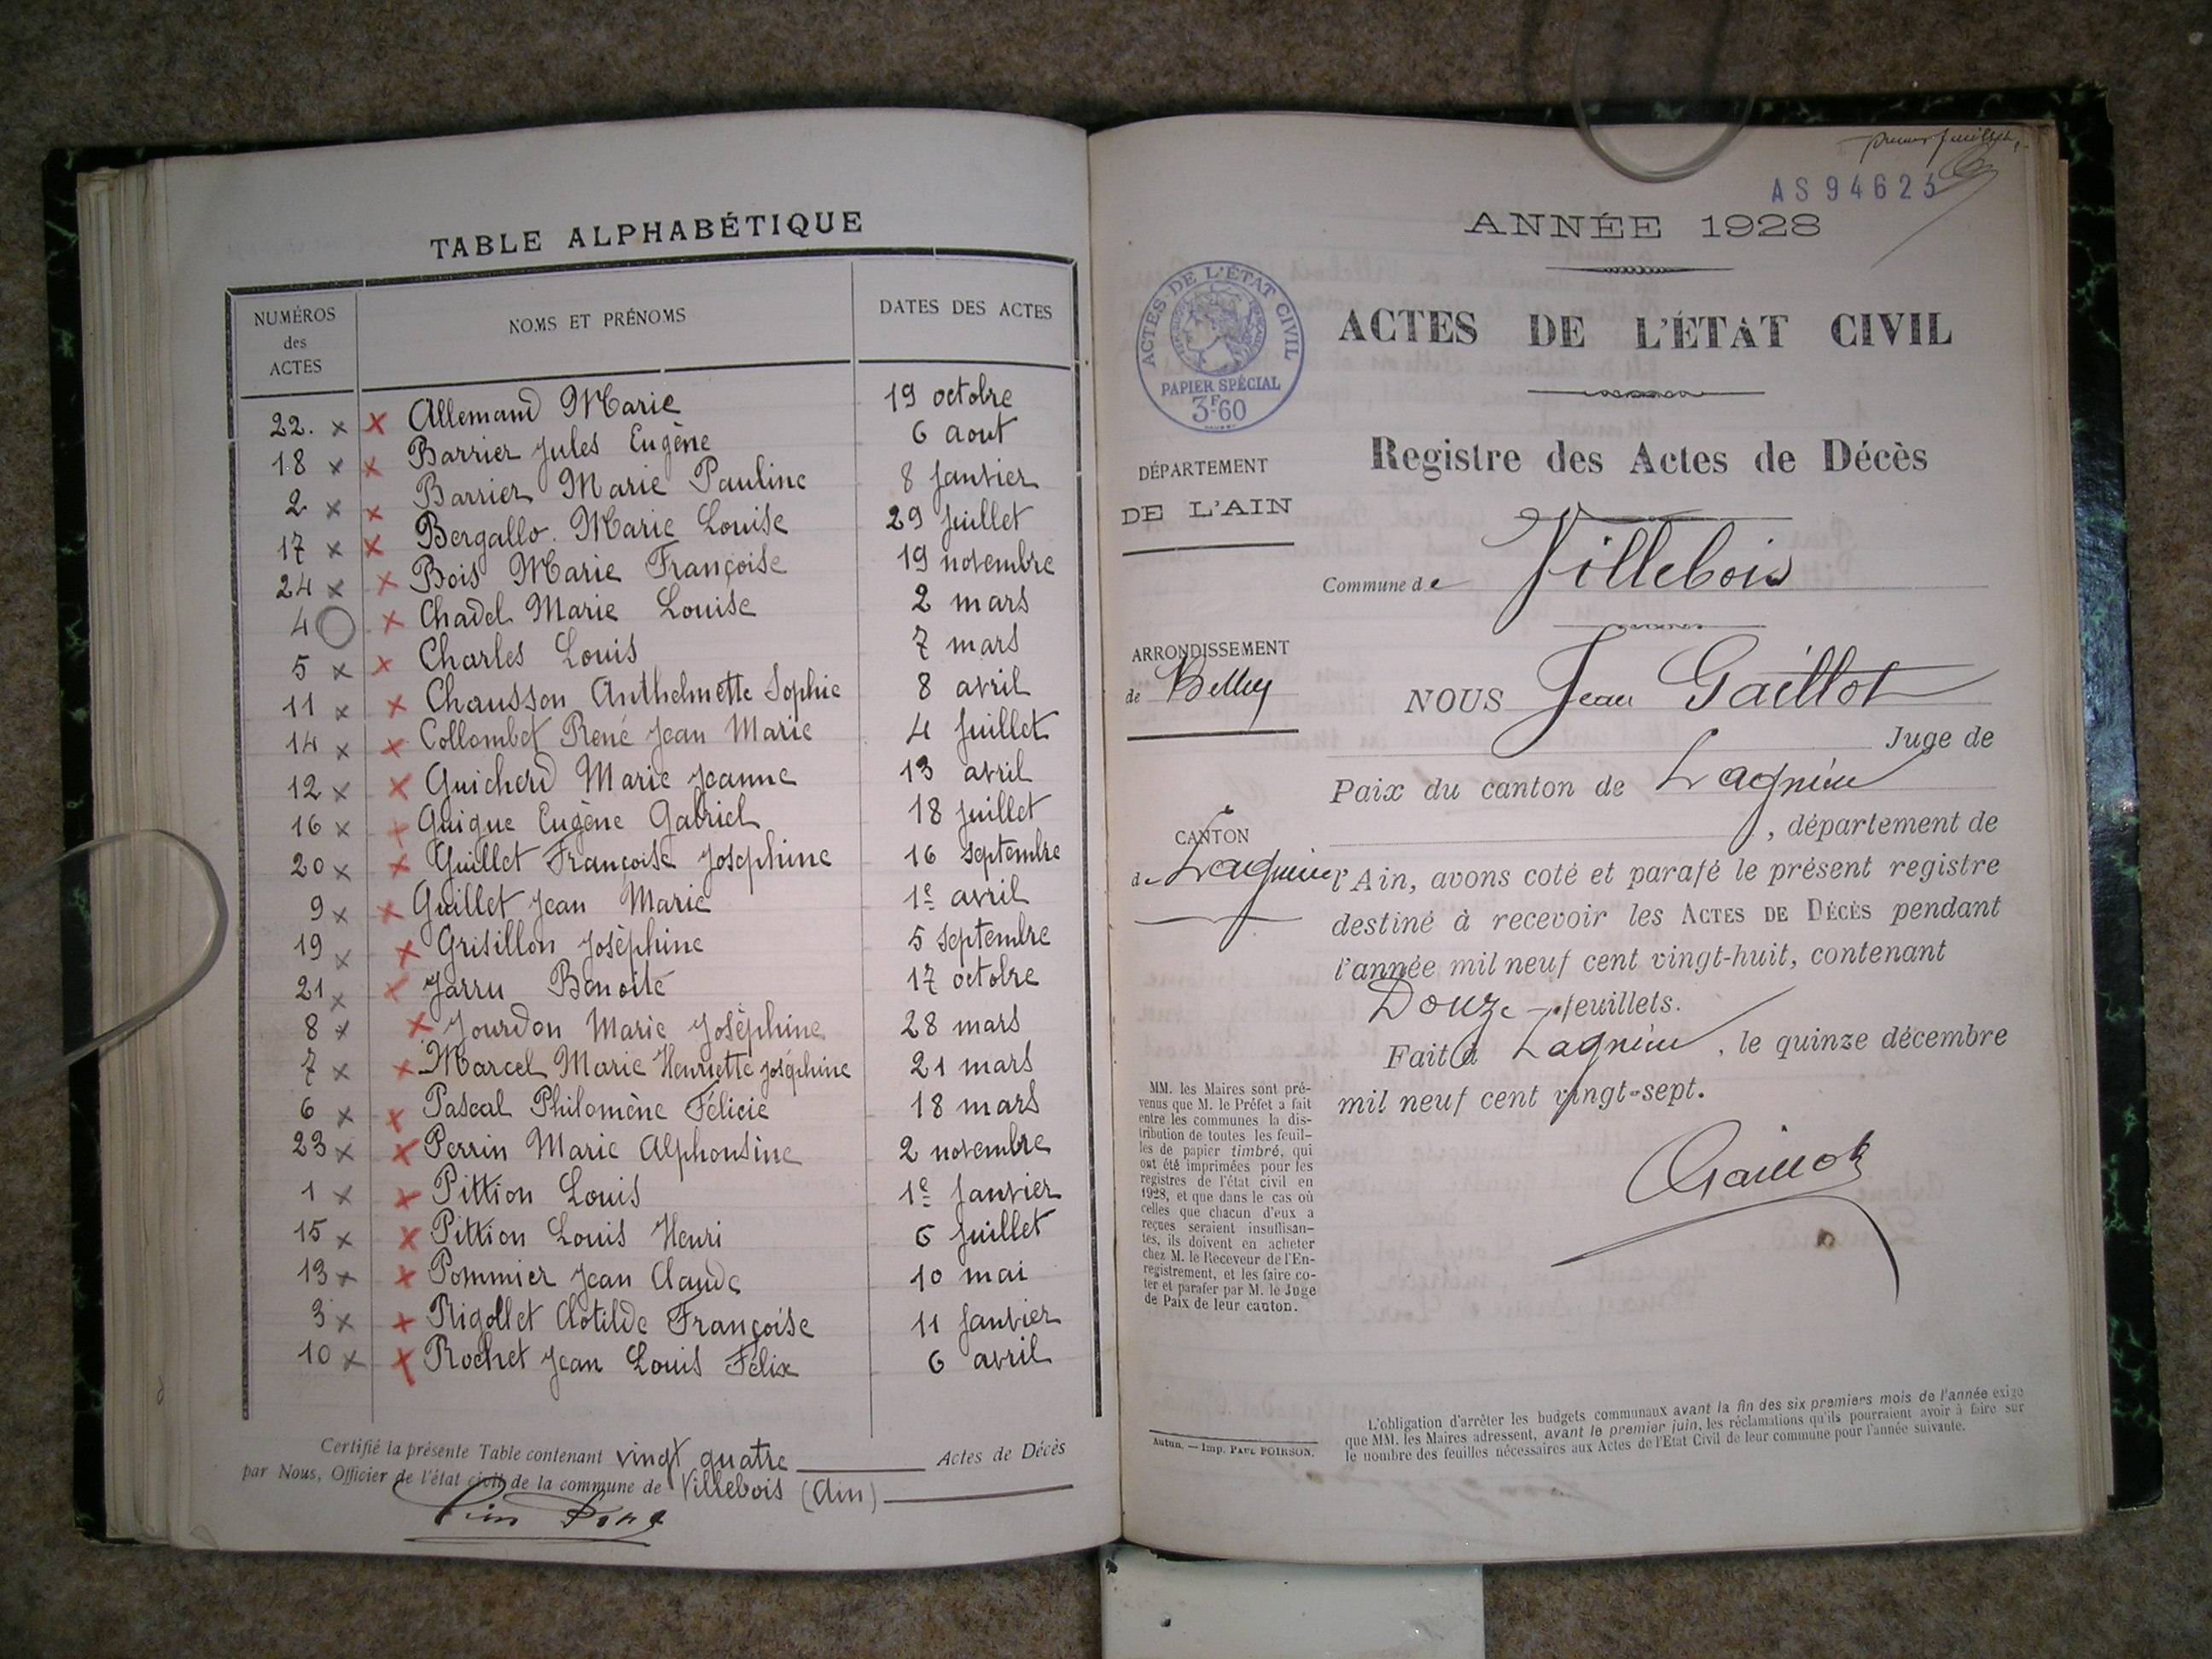 TABLE ALPHABÉTIQUE
NUMÉROS des ACTES NOMS ET PRÉNOMS DATES DES ACTES
22. Allemand Marie 19 octobre
18 Barrier Jules Eugène 6 aout
2 Barrier Marie Pauline 8 Janvier
17 Bergallo. Marie Louise 29 Juillet
24 Bois Marie Françoise 19 novembre
4 Chadel Marie Louise 2 mars
5 Charles Louis 7 mars
11 Chausson Anthelmette Sophie 8 avril
14 Collombet René Jean Marie 4 Juillet
12 Guicherd Marie Jeanne 13 avril
16 Guigue Eugène Gabriel 18 Juillet
20 Guillet Françoise Josephine 16 septembre
9 Guillet Jean Marie 1e avril
19 Grisillon Joséphine 5 septembre
21 Jarru Benoite 17 octobre
8 Jourdon Marie Joséphine 28 mars
7 Marcel Marie Henriette Joséphine 21 mars
6 Pascal Philomène Félicie 18 mars
23 Perrin Marie Alphonsine 2 novembre
1 Pittion Louis 1e Janvier
15 Pittion Louis Henri 6 Juillet
13 Pommier Jean Claude 10 mai
3 Rigollet Clotilde Françoise 11 Janvier
10 Rochet Jean Louis Félix 6 avril
Certifié la présente Table contenant vingt quatre Actes de Décès
par Nous, Officier de l'état civil de la commune de Villebois (Ain)
premier feuillet,
AS 94623
ANNÉE 1928
ACTES DE L'ÉTAT CIVIL
PAPIER SPÉCIAL
3F60
ACTES DE L'ÉTAT CIVIL
Registre des Actes de Décès
DÉPARTEMENT
DE L'AIN
Commune de Villebois
ARRONDISSEMENT
de Belley
NOUS Jean Gaillot
Juge de
Paix du canton de Lagnieu
, département de
CANTON
de Lagnieu
l'Ain, avons coté et parafé le présent registre
destiné à recevoir les ACTES DE DÉCÈS pendant
l'année mil neuf cent vingt-huit, contenant
Douze feuillets.
Fait à Lagnieu, le quinze décembre
mil neuf cent vingt-sept.
Gaillot
MM. les Maires sont pré-
venus que M. le Préfet a fait
entre les communes la dis-
tribution de toutes les feuil-
les de papier timbré, qui
ont été imprimées pour les
registres de l'état civil en
1928, et que dans le cas où
celles que chacun d'eux a
reçues seraient insuffisan-
tes, ils doivent en acheter
chez M. le Receveur de l'En-
registrement, et les faire co-
ter et parafer par M. le Juge
de Paix de leur canton.
Autun. — Imp. PAUL POIRSON.
L'obligation d'arrêter les budgets communaux avant la fin des six premiers mois de l'année exige
que MM. les Maires adressent, avant le premier juin, les réclamations qu'ils pourraient avoir à faire sur
le nombre des feuilles nécessaires aux Actes de l'Etat Civil de leur commune pour l'année suivante.